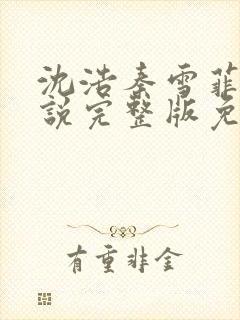 沈浩秦雪菲
說完整版免
有重非金